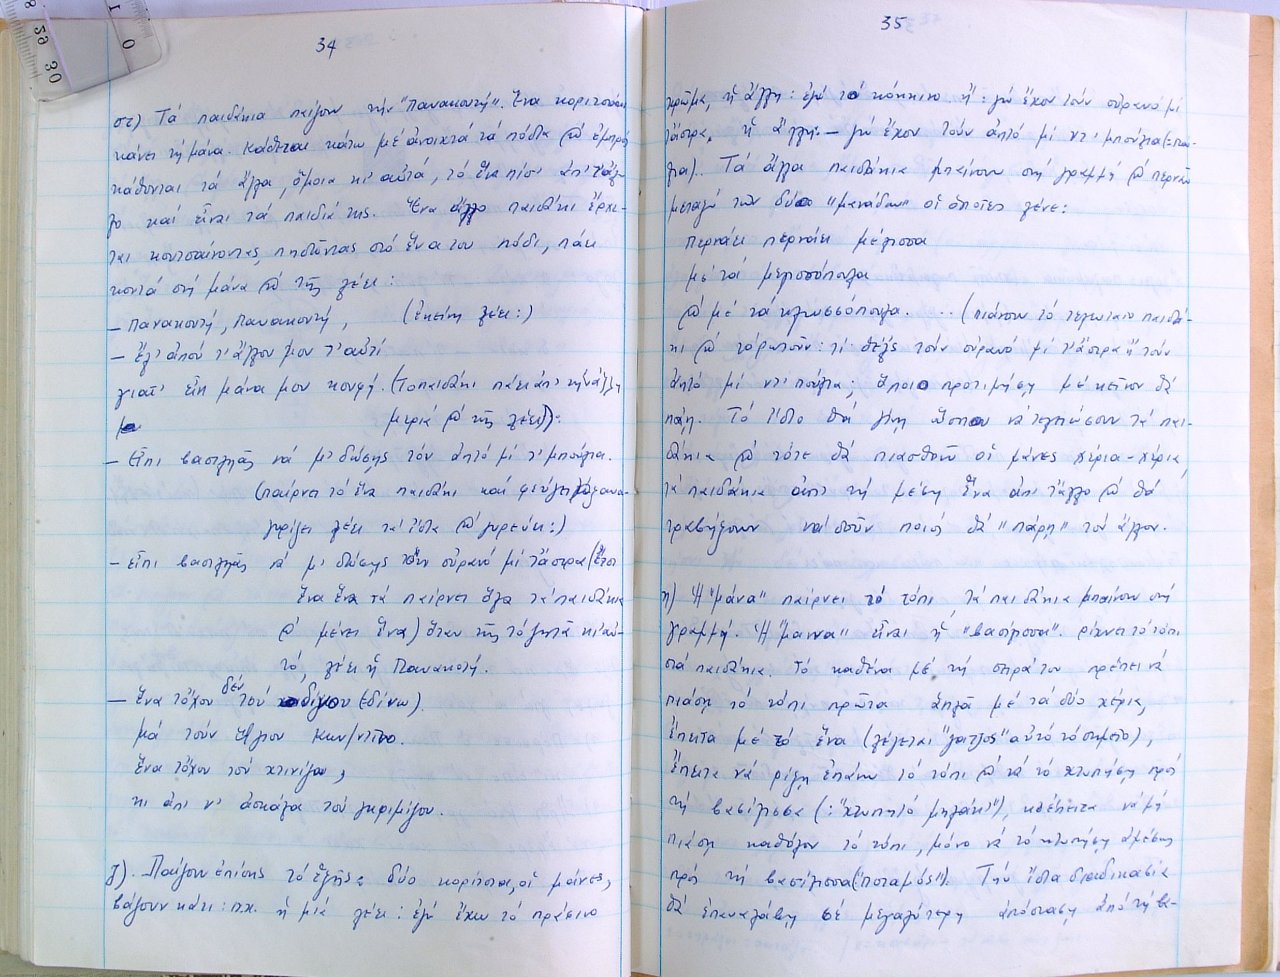 34
στ) Τά παιδάκια παίζουν τήν "Πανακουτή". Ἕνα κοριτσάκι
κάνει τή μάνα. Κάθεται κάτω μέ ἀνοιχτά τά πόδια κ' ἐμπρός
κάθονται τά ἄλλα, ὅμοια κι' αὐτά, τό ἕνα πίσ' ἀπ' τἄλ-
λο καί εἶναι τά παιδιά της. Ἕνα ἄλλο παιδάκι ἔρχε-
ται κουτσαίνοντας, πηδῶντας στό ἕνα του πόδι, πάει
κοντά στή μάνα κ' τῆς λέει:
– Πανακουτή, Πανακουτή, (ἐκείνη λέει:)
– Ἔλ' ἀπού τ' ἄλλου μου τ' αὐτί
γιατ' εἶν μάνα μου κουφή. (Τό παιδάκι πάει ἀπ' τήν ἄλλη
μεριά κ' τῆς λέει):
– Εἶπι βασιλιᾶς νά μ' δώσης τόν ἀητό μί τ' μπούλια.
(παίρνει τό ἕνα παιδάκι καί φεύγει κ' ξανα-
γυρίζει λέει τά ἴδια κ' γυρεύει:)
– εἶπι βασιλιᾶς νά μ' δώσης τόν οὐρανό μί τἄστρα (Ἔτσι
ἕνα ἕνα τά παίρνει ὅλα τά παιδάκια
κ' μένει ἕνα) ὅταν τῆς τό ζητᾶ κι' αὐ-
τό, λέει ἡ Πανακουτή.
– Ἕνα τὄχου δέν τού δίνου (=δίνω).
μά τούν Ἅγιου Κων/ντῖνο.
Ἕνα τὄχου τού χτινίζου,
κι ἀπί ν' ἀσκάλα τού γκριμίζου.
ζ). Παίζουν ἐπίσης τό ἑξῆς: δύο κορίτσια, οἱ μάνες,
βάζουν κάτι: π.χ. ἡ μιά λέει: ἐγώ ἔχω τό πράσινο
35
χρῶμα, ἡ ἄλλη: ἐγώ τό κόκκινο ἤ: γώ ἔχου τούν οὐρανό μί
τἄστρα, ἡ ἄλλη: – γώ ἔχου τούν ἀητό μί ντ' μπούλια (=πού-
λια). Τά ἄλλα παιδάκια μπαίνουν στή γραμμή κ' περνᾶν
μεταξύ τῶν δύο "μανάδων" οἱ ὁποῖες λένε:
Περνάει περνάει μέλισσα
μέ τά μελισσόπουλα
κ' μέ τά κλωσσόπουλα. ... (πιάνουν τό τελευταῖο παιδά-
κι κ' τό ρωτοῦν: τί θέλς τούν οὐρανό μί τ' ἄστρα ἤ τούν
ἀητό μί ντ' πούλια; ὅποιο προτιμήση μέ κεῖνον θά
πάη. Τό ἴδιο θά γίνη ὥσπου νά τελειώσουν τά παι-
δάκια κ' τότε θά πιασθοῦν οἱ μάνες χέρια-χέρια,
τά παιδάκια ἀπ' τή μέση ἕνα ἀπ' τἄλλο κ' θά
τραβήξουν νά δοῦν ποιός θά "πάρη" τόν ἄλλον.
η) Ἡ "μάνα" παίρνει τό τόπι, τά παιδάκια μπαίνουν στή
γραμμή. Ἡ "μάννα" εἶναι ἡ "βασίλισσα". ρίχνει τό τόπι
στά παιδάκια. Τό καθένα μέ τή σειρά του πρέπει νά
πιάση τό τόπι πρῶτα ἁπλᾶ μέ τά δύο χέρια,
ἔπειτα μέ τό ἕνα (λέγεται "γάτζος" αὐτό τό σημεῖο),
ἔπειτα νά ρίξη ἐπάνω τό τόπι κ' νά τό χτυπήση πρός
τή βασίλισσα (: "χτυπητό μηλάκι"), κι ἔπειτα νά μή
πιάση καθόλου τό τόπι, μόνο νά τό χτυπήση ἀμέσως
πρός τή βασίλισσα ("ποταμός"). Τήν ἴδια διαδικασία
θά ἐπαναλάβη σέ μεγαλύτερη ἀπόσταση ἀπό τή βα-